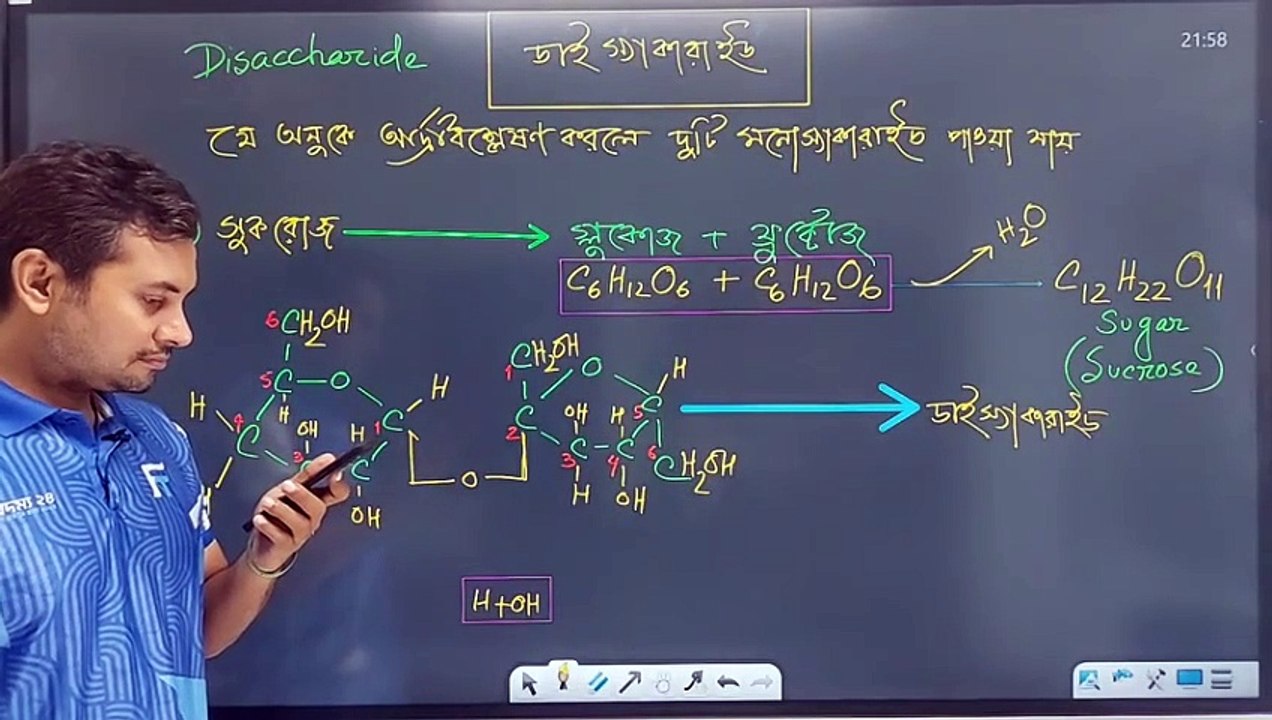 Disaccharide
ডাইস্যাকারাইড
21:58
যে অনুকে আর্দ্রবিশ্লেষণ করলে দুটি মনোস্যাকারাইড পাওয়া যায়
সুকরোজ → গ্লুকোজ + ফ্রুক্টোজ
C₆H₁₂O₆ + C₆H₁₂O₆
H₂O
C₁₂H₂₂O₁₁
Sugar
(Sucrose)
6 CH₂OH
1 CH₂OH
5 C O
H
O
H
H
OH
H
4 C
1 C
2 C
OH
H
5 C
3
C
3 C
4 C
6 CH₂OH
O
OH
H
OH
ডাইস্যাকারাইড
H+OH
২৪